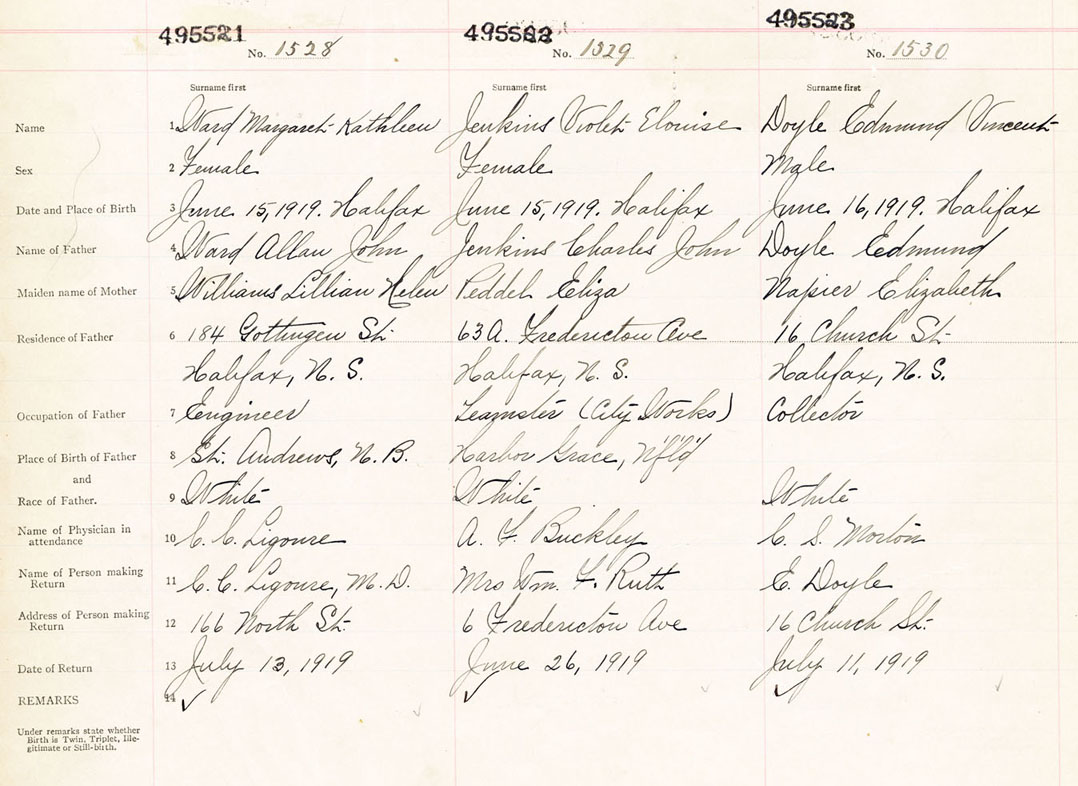 495521 495522 495523
No. 1528 No. 1529 No. 1530
Surname first Surname first Surname first
Name 1 Ward Margaret Kathleen Jenkins Violet Elouise Doyle Edmund Vincent
Sex 2 Female Female Male
Date and Place of Birth 3 June 15, 1919. Halifax June 15, 1919. Halifax June 16, 1919. Halifax
Name of Father 4 Ward Allan John Jenkins Charles John Doyle Edmund
Maiden name of Mother 5 Williams Lillian Helen Peddel Eliza Napier Elizabeth
Residence of Father 6 184 Gottingen St. 63A. Fredericton Ave 16 Church St.
Halifax, N. S. Halifax, N. S. Halifax, N. S.
Occupation of Father 7 Engineer Teamster (City Works) Collector
Place of Birth of Father 8 St. Andrews, N. B. Harbor Grace, N'f'l'd
and
Race of Father. 9 White White White
Name of Physician in
attendance 10 C. C. Ligoure A. F. Buckley C. S. Morton
Name of Person making
Return 11 C. C. Ligoure, M. D. Mrs Wm. F. Ruth E. Doyle
Address of Person making
Return 12 166 North St. 6 Fredericton Ave 16 Church St.
Date of Return 13 July 13, 1919 June 26, 1919 July 11, 1919
REMARKS 14
Under remarks state whether
Birth is Twin, Triplet, Ille-
gitimate or Still-birth.